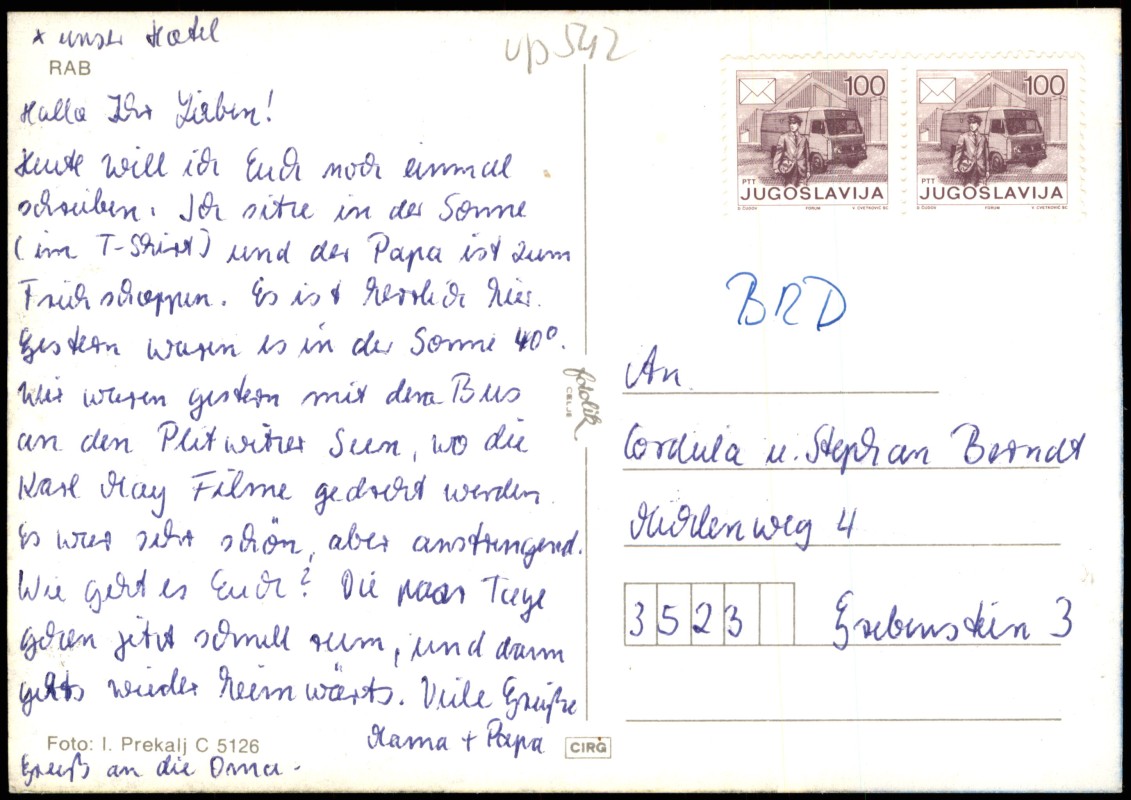 * unser Hotel
RAB
Hallo Ihr Lieben!
Heute will ich Euch noch einmal
schreiben. Ich sitze in der Sonne
(im T-Shirt) und der Papa ist zum
Frühschoppen. Es ist herrlich hier.
Gestern waren es in der Sonne 40°.
Wir waren gestern mit dem Bus
an den Plitwitzer Seen, wo die
Karl May Filme gedreht werden.
Es war sehr schön, aber anstrengend.
Wie geht es Euch? Die paar Tage
gehen jetzt schnell rum, und dann
gehts wieder heimwärts. Viele Grüße
Mama + Papa
Foto: I. Prekalj C 5126
Gruß an die Oma.
up 542
fotolik
CELJE
CIRG
100
PTT
JUGOSLAVIJA
D. ČUDOV FORUM V. CVETKOVIĆ SC
100
PTT
JUGOSLAVIJA
D. ČUDOV FORUM V. CVETKOVIĆ SC
BRD
An
Cordula u. Stephan Berndt
Mühlenweg 4
3523 Grebenstein 3